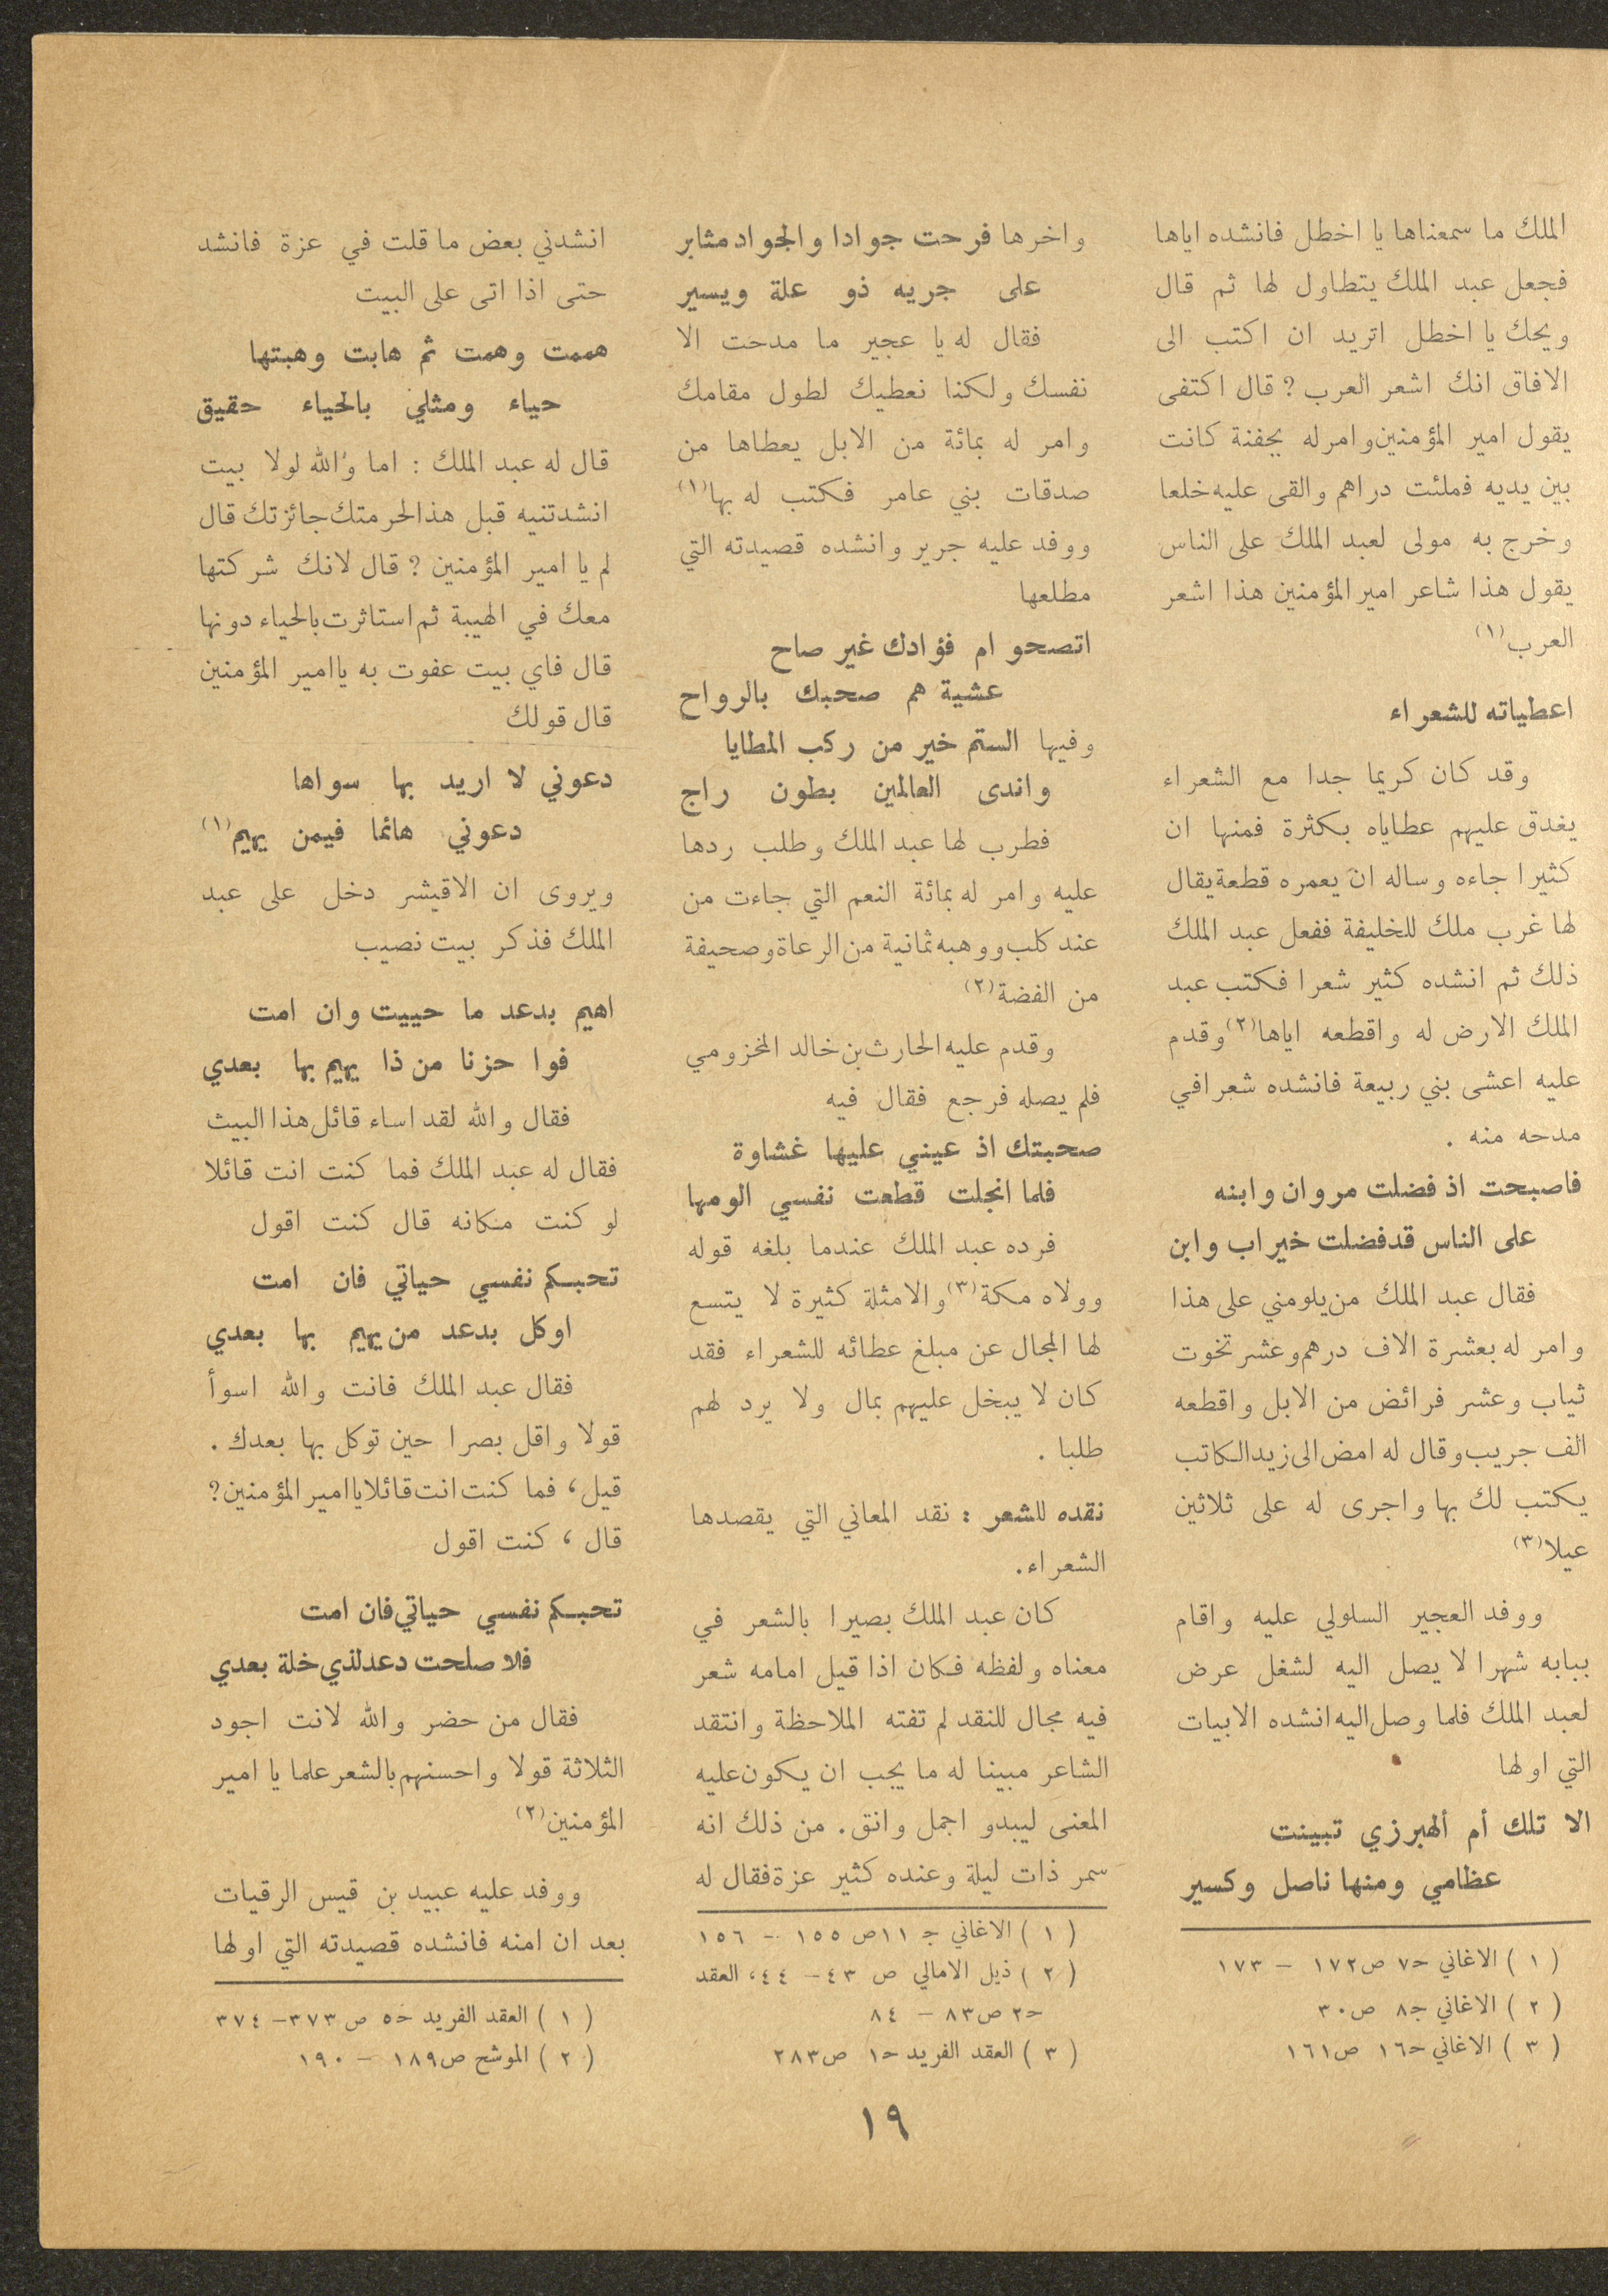 الملك ما سمعناها يا اخطل فانشده اياها
فجعل عبد الملك يتطاول لها ثم قال
ويحك يا اخطل اتريد ان اكتب الى
الافاق انك اشعر العرب ? قال اكتفى
يقول امير المؤمنين وامر له بجفنة كانت
بين يديه فملئت دراهم والقى عليه خلعا
وخرج به مولى لعبد الملك على الناس
يقول هذا شاعر امير المؤمنين هذا اشعر
العرب (١)
اعطياته للشعراء
وقد كان كريما جدا مع الشعراء
يغدق عليهم عطاياه بكثرة فمنها ان
كثيرا جاءه وساله ان يعمره قطعة يقال
لها غرب ملك للخليفة ففعل عبد الملك
ذلك ثم انشده كثير شعرا فكتب عبد
الملك الارض له واقطعه اياها (٢) وقدم
عليه اعشى بني ربيعة فانشده شعرا في
مدحه منه .
فاصبحت اذ فضلت مروان وابنه
على الناس قد فضلت خير اب وابن
فقال عبد الملك من يلومني على هذا
وامر له بعشرة الاف درهم وعشر تخوت
ثياب وعشر فرائض من الابل واقطعه
الف جريب وقال له امض الى زيد الكاتب
يكتب لك بها واجرى له على ثلاثين
عيلا (٣)
ووفد العجير السلولي عليه واقام
ببابه شهرا لا يصل اليه لشغل عرض
لعبد الملك فلما وصل اليه انشده الابيات
التي اولها
الا تلك أم ألهبرزي تبينت
عظامي ومنها ناصل وكسير
( ١ ) الاغاني ح٧ ص١٧٢ – ١٧٣
( ٢ ) الاغاني ج٨ ص٣٠
( ٣ ) الاغاني ح١٦ ص١٦١
واخرها فرحت جوادا والجواد مثابر
على جريه ذو علة ويسير
فقال له يا عجير ما مدحت الا
نفسك ولكنا نعطيك لطول مقامك
وامر له بمائة من الابل يعطاها من
صدقات بني عامر فكتب له بها (١)
ووفد عليه جرير وانشده قصيدته التي
مطلعها
اتصحو ام فؤادك غير صاح
عشية هم صحبك بالرواح
وفيها الستم خير من ركب المطايا
واندى العالمين بطون راح
فطرب لها عبد الملك وطلب ردها
عليه وامر له بمائة النعم التي جاءت من
عند كلب ووهبه ثمانية من الرعاة وصحيفة
من الفضة (٢)
وقدم عليه الحارث بن خالد المخزومي
فلم يصله فرجع فقال فيه
صحبتك اذ عيني عليها غشاوة
فلما انجلت قطعت نفسي الومها
فرده عبد الملك عندما بلغه قوله
وولاه مكة (٣) والامثلة كثيرة لا يتسع
لها المجال عن مبلغ عطائه للشعراء فقد
كان لا يبخل عليهم بمال ولا يرد لهم
طلبا .
نقده للشعر : نقد المعاني التي يقصدها
الشعراء.
كان عبد الملك بصيرا بالشعر في
معناه ولفظه فكان اذا قيل امامه شعر
فيه مجال للنقد لم تفته الملاحظة وانتقد
الشاعر مبينا له ما يجب ان يكون عليه
المعنى ليبدو اجمل وانق. من ذلك انه
سمر ذات ليلة وعنده كثير عزة فقال له
( ١ ) الاغاني ج ١١ص ١٥٥ – ١٥٦
( ٢ ) ذيل الامالي ص ٤٣– ٤٤، العقد
ح٢ ص٨٣ – ٨٤
( ٣ ) العقد الفريد ح١ ص٢٨٣
انشدني بعض ما قلت في عزة فانشد
حتى اذا اتى على البيت
هممت وهمت ثم هابت وهبتها
حياء ومثلي بالحياء حقيق
قال له عبد الملك : اما والله لولا بيت
انشدتنيه قبل هذا لحرمتك جائزتك قال
لم يا امير المؤمنين ? قال لانك شركتها
معك في الهيبة ثم استاثرت بالحياء دونها
قال فاي بيت عفوت به يا امير المؤمنين
قال قولك
دعوني لا اريد بها سواها
دعوني هائما فيمن يهيم (١)
ويروى ان الاقيشر دخل على عبد
الملك فذكر بيت نصيب
اهيم بدعد ما حييت وان امت
فوا حزنا من ذا يهيم بها بعدي
فقال والله لقد اساء قائل هذا البيث
فقال له عبد الملك فما كنت انت قائلا
لو كنت مكانه قال كنت اقول
تحبكم نفسي حياتي فان امت
اوكل بدعد من يهيم بها بعدي
فقال عبد الملك فانت والله اسوأ
قولا واقل بصرا حين توكل بها بعدك .
قيل ، فما كنت انت قائلا يا امير المؤمنين ?
قال ، كنت اقول
تحبكم نفسي حياتي فان امت
فلا صلحت دعد لذي خلة بعدي
فقال من حضر والله لانت اجود
الثلاثة قولا واحسنهم بالشعر علما يا امير
المؤمنين (٢)
ووفد عليه عبيد بن قيس الرقيات
بعد ان امنه فانشده قصيدته التي اولها
( ١ ) العقد الفريد ح٥ ص ٣٧٣– ٣٧٤
( ٢ ) الموشح ص١٨٩ – ١٩٠
١٩